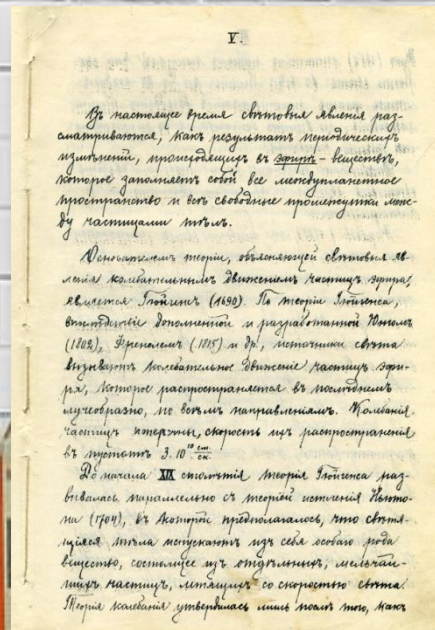 V.
Въ настоящее время свѣтовыя явленія раз-
сматриваются, какъ результатъ періодическихъ
измѣненій, происходящихъ въ эфирѣ – веществѣ,
которое заполняетъ собой все междупланетное
пространство и всѣ свободные промежутки меж-
ду частицами тѣлъ.
Основателемъ теоріи, объясняющей свѣтовыя яв-
ленія колебательнымъ движеніемъ частицъ эфира,
является Гюйгенсъ (1690). По теоріи Гюйгенса,
впослѣдствіе дополненной и разработанной Юнгомъ
(1802), Френелемъ (1815) и др., источники свѣта
вызываютъ колебательное движеніе частицъ эфи-
ра, которое распространяется въ послѣднемъ
лучеобразно, по всѣмъ направленіямъ. Колебанія
частицъ поперечны, скорость ихъ распространенія
въ пустотѣ 3.10¹⁰ см/ск.
До начала XIX столѣтія теорія Гюйгенса раз-
вивалась параллельно съ теоріей истеченія Ньюто-
на (1704), въ которой предполагалось, что свѣтя-
щіяся тѣла испускаютъ изъ себя особаго рода
вещество, состоящее изъ отдѣльныхъ, мельчай-
шихъ частицъ, летящихъ со скоростью свѣта.
Теорія колебанія утвердилась лишь послѣ того, какъ